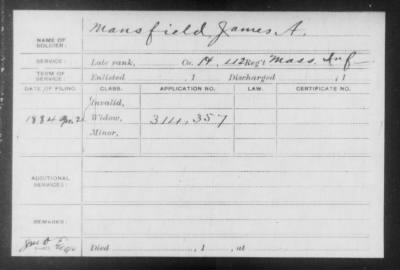 NAME OF SOLDIER: Mansfield, James A.
SERVICE: Late rank, Co. Reg't Mass. Inf
TERM OF SERVICE: Enlisted , 1 Discharged , 1
DATE OF FILING. CLASS. APPLICATION NO. LAW. CERTIFICATE NO.
Invalid,
1884 Widow, 314,357
Minor,
ADDITIONAL SERVICES:
REMARKS:
Died , 1 , at